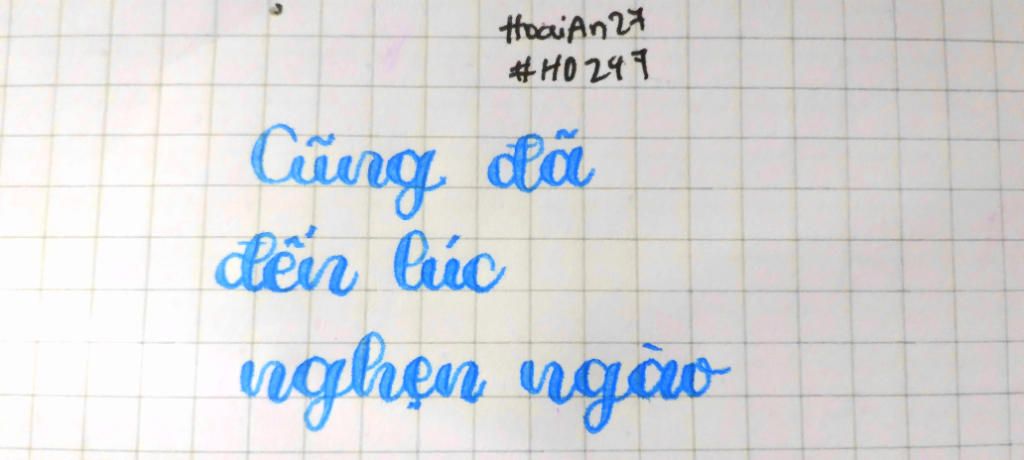 HoaiAn27
#H0297
Cũng đã
đến lúc
nghẹn ngào